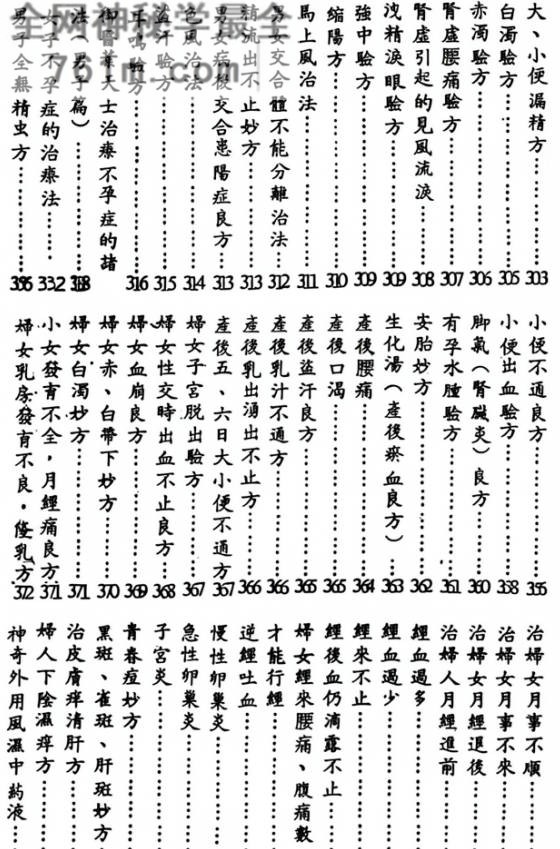 大、小便漏精方……303
白濁驗方……305
赤濁驗方……306
腎虛腰痛驗方……307
腎虛引起的見風流淚……308
洩精淚眼驗方……309
強中驗方……309
縮陽方……310
馬上風治法……311
男女交合體不能分離治法……312
精流出不止妙方……313
男女病後交合患陽症良方……313
色風治法……314
盜汗驗方……315
耳鳴驗方……316
御醫葉天士治療不孕症的諸
法(男子篇)……318
女子不孕症的治療法……332
男子全無精虫方……336
小便不通良方……355
小便出血驗方……358
脚氣(腎臟炎)良方……360
有孕水腫驗方……361
安胎妙方……362
生化湯(產後瘀血良方)……363
產後腰痛……364
產後口渴……365
產後盜汗良方……365
產後乳汁不通方……366
產後乳出湧出不止方……366
產後五、六日大小便不通方……367
婦女子宮脫出驗方……367
婦女性交時出血不止良方……368
婦女血崩良方……369
婦女赤、白帶下妙方……370
婦女白濁妙方……371
小女發育不全,月經痛良方……371
婦女乳房發育不良.隆乳方……372
治婦女月事不順……
治婦女月事不來……
治婦女月經退後……
治婦人月經進前……
經血過多……
經血過少……
經來不止……
經後血仍滴露不止……
婦女經來腰痛、腹痛數
才能行經……
逆經吐血……
慢性卵巢炎……
急性卵巢炎……
子宮炎……
青春痘妙方……
黑斑、雀斑、肝斑妙方……
治皮膚痒清肝方……
婦人下陰濕痒方……
神奇外用風濕中葯液……
全网神秘学最全
761m.com